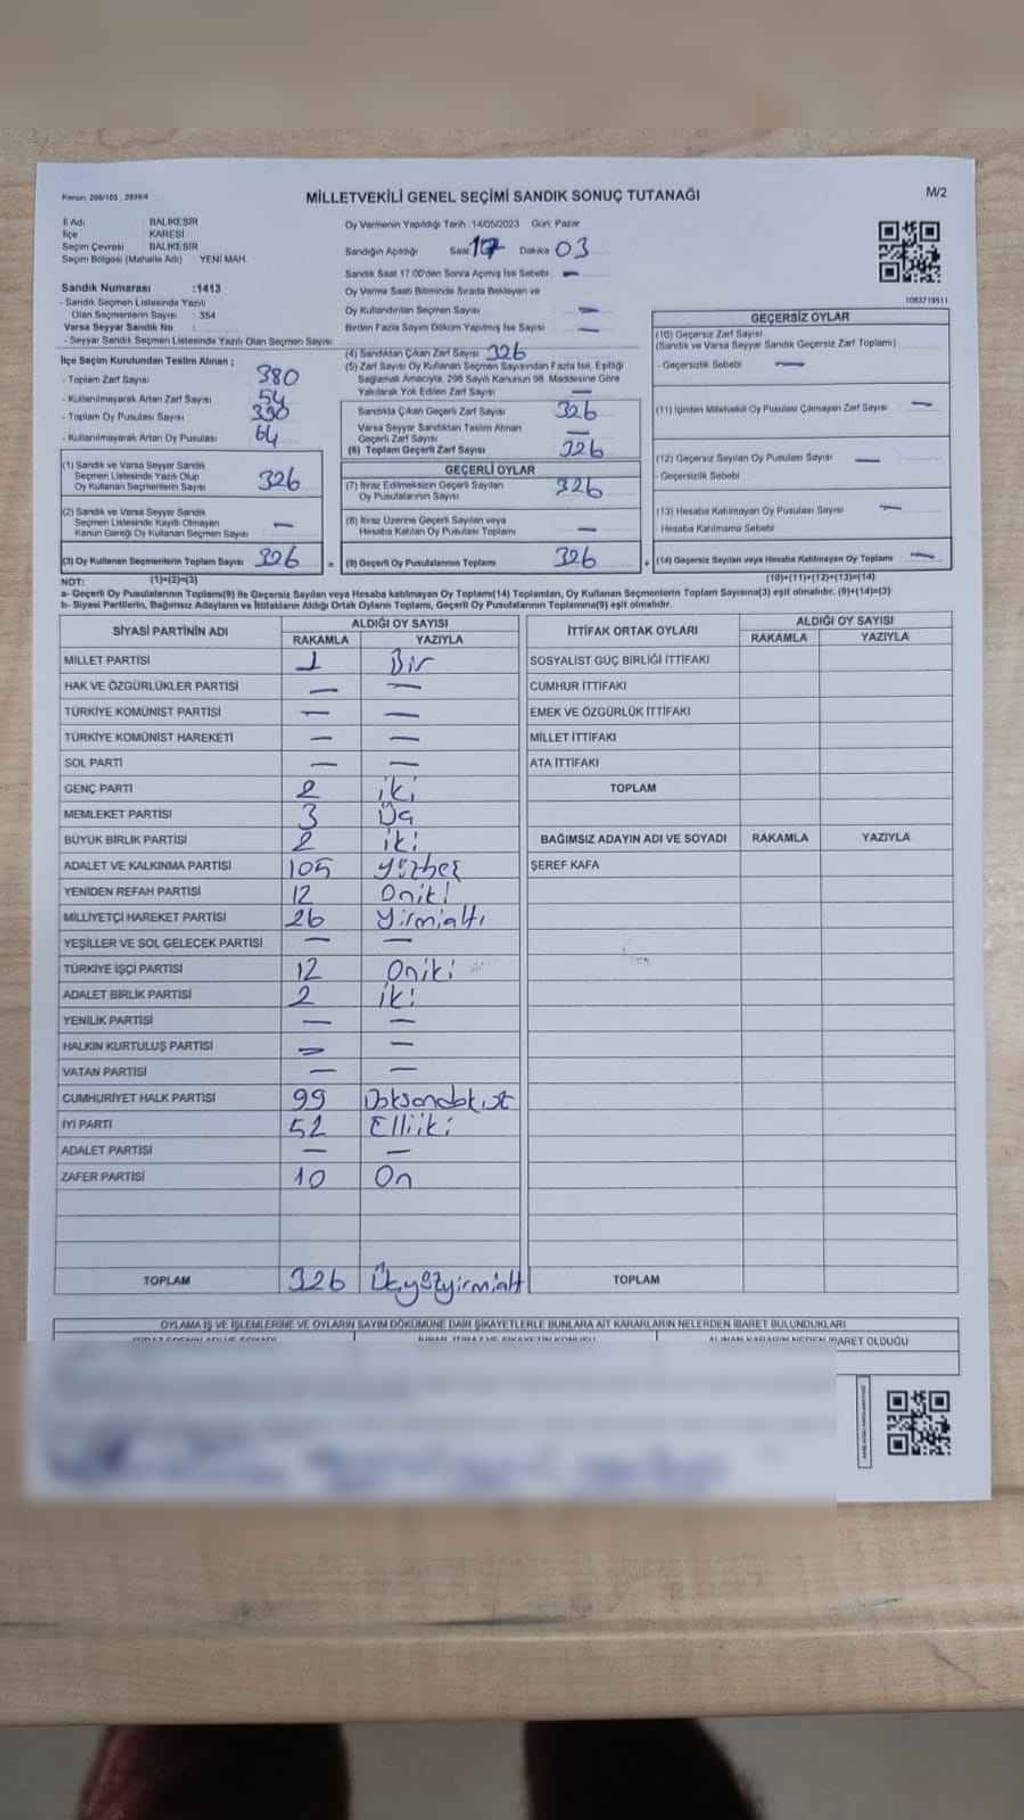 Kanun: 298/105 , 2839/4
MİLLETVEKİLİ GENEL SEÇİMİ SANDIK SONUÇ TUTANAĞI
M/2
İl Adı: BALIKESİR
İlçe : KARESİ
Seçim Çevresi : BALIKESİR
Seçim Bölgesi (Mahalle Adı) : YENİ MAH.
Sandık Numarası :1413
- Sandık Seçmen Listesinde Yazılı
Olan Seçmenlerin Sayısı : 354
Varsa Seyyar Sandık No :
- Seyyar Sandık Seçmen Listesinde Yazılı Olan Seçmen Sayısı:
İlçe Seçim Kurulundan Teslim Alınan ;
- Toplam Zarf Sayısı 380
- Kullanılmayarak Artan Zarf Sayısı 54
- Toplam Oy Pusulası Sayısı 390
- Kullanılmayarak Artan Oy Pusulası 64
(1) Sandık ve Varsa Seyyar Sandık
Seçmen Listesinde Yazılı Olup
Oy Kullanan Seçmenlerin Sayısı 326
(2) Sandık ve Varsa Seyyar Sandık
Seçmen Listesinde Kayıtlı Olmayan
Kanun Gereği Oy Kullanan Seçmen Sayısı —
(3) Oy Kullanan Seçmenlerin Toplam Sayısı 326
Oy Vermenin Yapıldığı Tarih :14/05/2023 Gün: Pazar
Sandığın Açıldığı Saat 17 Dakika 03
Sandık Saat 17.00'den Sonra Açılmış İse Sebebi —
Oy Verme Saati Bitiminde Sırada Bekleyen ve
Oy Kullandırılan Seçmen Sayısı —
Birden Fazla Sayım Döküm Yapılmış İse Sayısı —
(4) Sandıktan Çıkan Zarf Sayısı 326
(5) Zarf Sayısı Oy Kullanan Seçmen Sayısından Fazla İse, Eşitliği
Sağlamak Amacıyla, 298 Sayılı Kanunun 98. Maddesine Göre
Yakılarak Yok Edilen Zarf Sayısı —
Sandıkta Çıkan Geçerli Zarf Sayısı 326
Varsa Seyyar Sandıktan Teslim Alınan
Geçerli Zarf Sayısı —
(6) Toplam Geçerli Zarf Sayısı 326
GEÇERLİ OYLAR
(7) İtiraz Edilmeksizin Geçerli Sayılan
Oy Pusulalarının Sayısı 326
(8) İtiraz Üzerine Geçerli Sayılan veya
Hesaba Katılan Oy Pusulası Toplamı —
= (9) Geçerli Oy Pusulalarının Toplamı 326
1083719511
GEÇERSİZ OYLAR
(10) Geçersiz Zarf Sayısı
(Sandık ve Varsa Seyyar Sandık Geçersiz Zarf Toplamı)
- Geçersizlik Sebebi —
(11) İçinden Milletvekili Oy Pusulası Çıkmayan Zarf Sayısı —
(12) Geçersiz Sayılan Oy Pusulası Sayısı —
- Geçersizlik Sebebi
(13) Hesaba Katılmayan Oy Pusulası Sayısı —
Hesaba Katılmama Sebebi
+ (14) Geçersiz Sayılan veya Hesaba Katılmayan Oy Toplamı —
NOT: (1)+(2)=(3)
(10)+(11)+(12)+(13)=(14)
a- Geçerli Oy Pusulalarının Toplamı(9) ile Geçersiz Sayılan veya Hesaba katılmayan Oy Toplamı(14) Toplamları, Oy Kullanan Seçmenlerin Toplam Sayısına(3) eşit olmalıdır. (9)+(14)=(3)
b- Siyasi Partilerin, Bağımsız Adayların ve İttifakların Aldığı Ortak Oyların Toplamı, Geçerli Oy Pusulalarının Toplamına(9) eşit olmalıdır.
SİYASİ PARTİNİN ADI ALDIĞI OY SAYISI
RAKAMLA YAZIYLA
MİLLET PARTİSİ 1 Bir
HAK VE ÖZGÜRLÜKLER PARTİSİ — —
TÜRKİYE KOMÜNİST PARTİSİ — —
TÜRKİYE KOMÜNİST HAREKETİ — —
SOL PARTİ — —
GENÇ PARTİ 2 iki
MEMLEKET PARTİSİ 3 Üç
BÜYÜK BİRLİK PARTİSİ 2 iki
ADALET VE KALKINMA PARTİSİ 105 yüzbeş
YENİDEN REFAH PARTİSİ 12 Oniki
MİLLİYETÇİ HAREKET PARTİSİ 26 yirmialtı
YEŞİLLER VE SOL GELECEK PARTİSİ — —
TÜRKİYE İŞÇİ PARTİSİ 12 Oniki
ADALET BİRLİK PARTİSİ 2 iki
YENİLİK PARTİSİ — —
HALKIN KURTULUŞ PARTİSİ — —
VATAN PARTİSİ — —
CUMHURİYET HALK PARTİSİ 99 Doksandokuz
İYİ PARTİ 52 Elliiki
ADALET PARTİSİ — —
ZAFER PARTİSİ 10 On
TOPLAM 326 Üçyüzyirmialt
İTTİFAK ORTAK OYLARI ALDIĞI OY SAYISI
RAKAMLA YAZIYLA
SOSYALİST GÜÇ BİRLİĞİ İTTİFAKI
CUMHUR İTTİFAKI
EMEK VE ÖZGÜRLÜK İTTİFAKI
MİLLET İTTİFAKI
ATA İTTİFAKI
TOPLAM
BAĞIMSIZ ADAYIN ADI VE SOYADI RAKAMLA YAZIYLA
ŞEREF KAFA
TOPLAM
OYLAMA İŞ VE İŞLEMLERİNE VE OYLARIN SAYIM DÖKÜMÜNE DAİR ŞİKAYETLERLE BUNLARA AİT KARARLARIN NELERDEN İBARET BULUNDUKLARI
ALINAN KARARIN NEDEN İBARET OLDUĞU